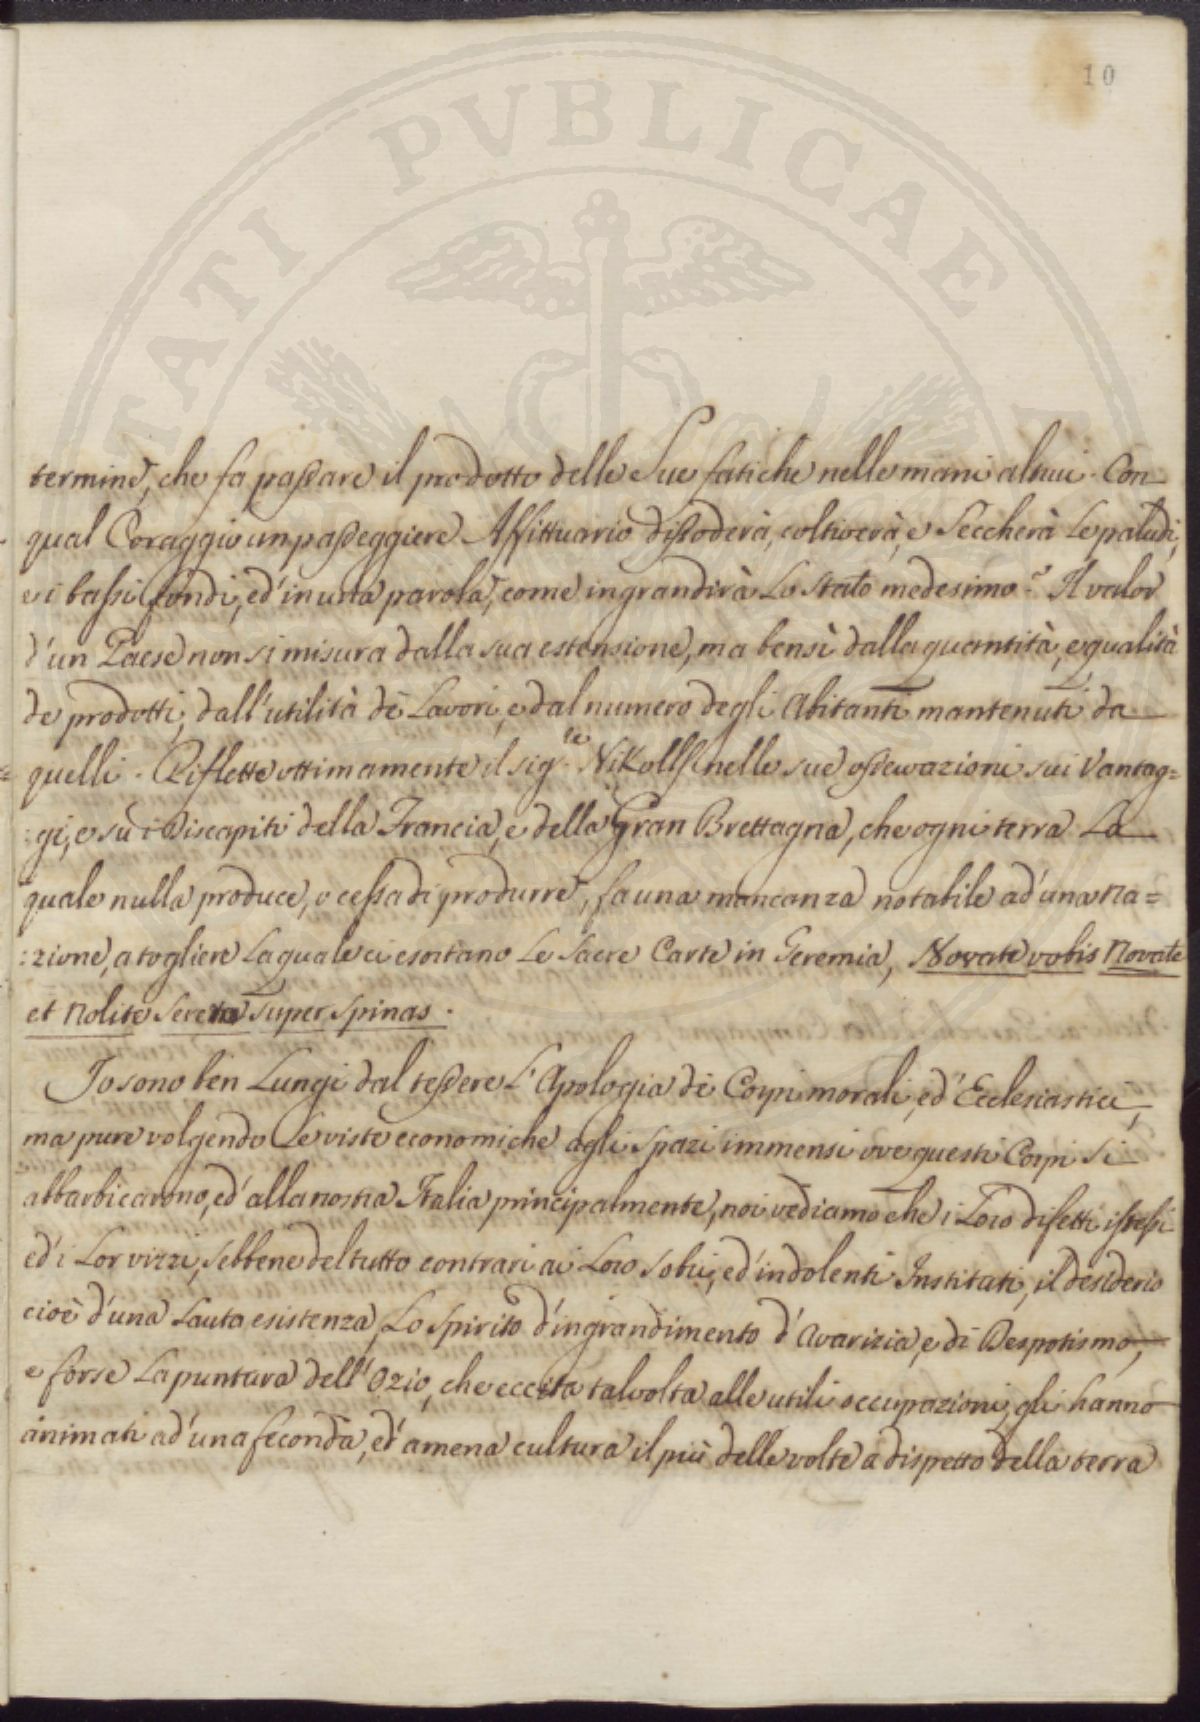 10
TATI PVBLICAE
termine, che fa passare il prodotto delle Sue fatiche nelle mani altrui. Con
qual Coraggio un passeggiere Affittuario dissoderà, coltiverà, e Seccherà Le paludi,
e i bassi fondi, ed' in una parola, come ingrandirà Lo Stato medesimo? Il valor
d'un Paese non si misura dalla sua estensione, ma bensì dalla quantità, e qualità
de prodotti, dall'utilità dè Lavori, e dal numero degli Abitanti mantenuti da
quelli. Riflette ottimamente il sig.re Nikolls nelle sue osservazioni sui Vantag=
:gi, e su i Discapiti della Francia, e della Gran Brettagna, che ogni terra La
quale nulla produce, o cessa di produrre, fa una mancanza notabile ad'una Na=
:zione, a togliere La quale ci esortano Le Sacre Carte in Geremia, Novate vobis Novale
et Nolite Serere super spinas.
Io sono ben Lungi dal tessere L'Apologia dè Corpi morali, ed' Ecclesiastici,
ma pure volgendo Le viste economiche agli Spazi immensi ove questi Corpi si
abbarbicarono, ed' alla nostra Italia principalmente, noi vediamo che i Loro difetti istessi
ed' i Lor vizzi, Sebbene del tutto contrari ai Loro Sobri, ed' indolenti Instituti, il desiderio
cioè d'una Lauta esistenza, Lo Spirito d'ingrandimento d'Avarizia, e di Despotismo,
e forse La puntura dell'Ozio, che eccita talvolta alle utili occupazioni, gli hanno
animati ad'una feconda, ed' amena cultura il più delle volte a dispetto della terra